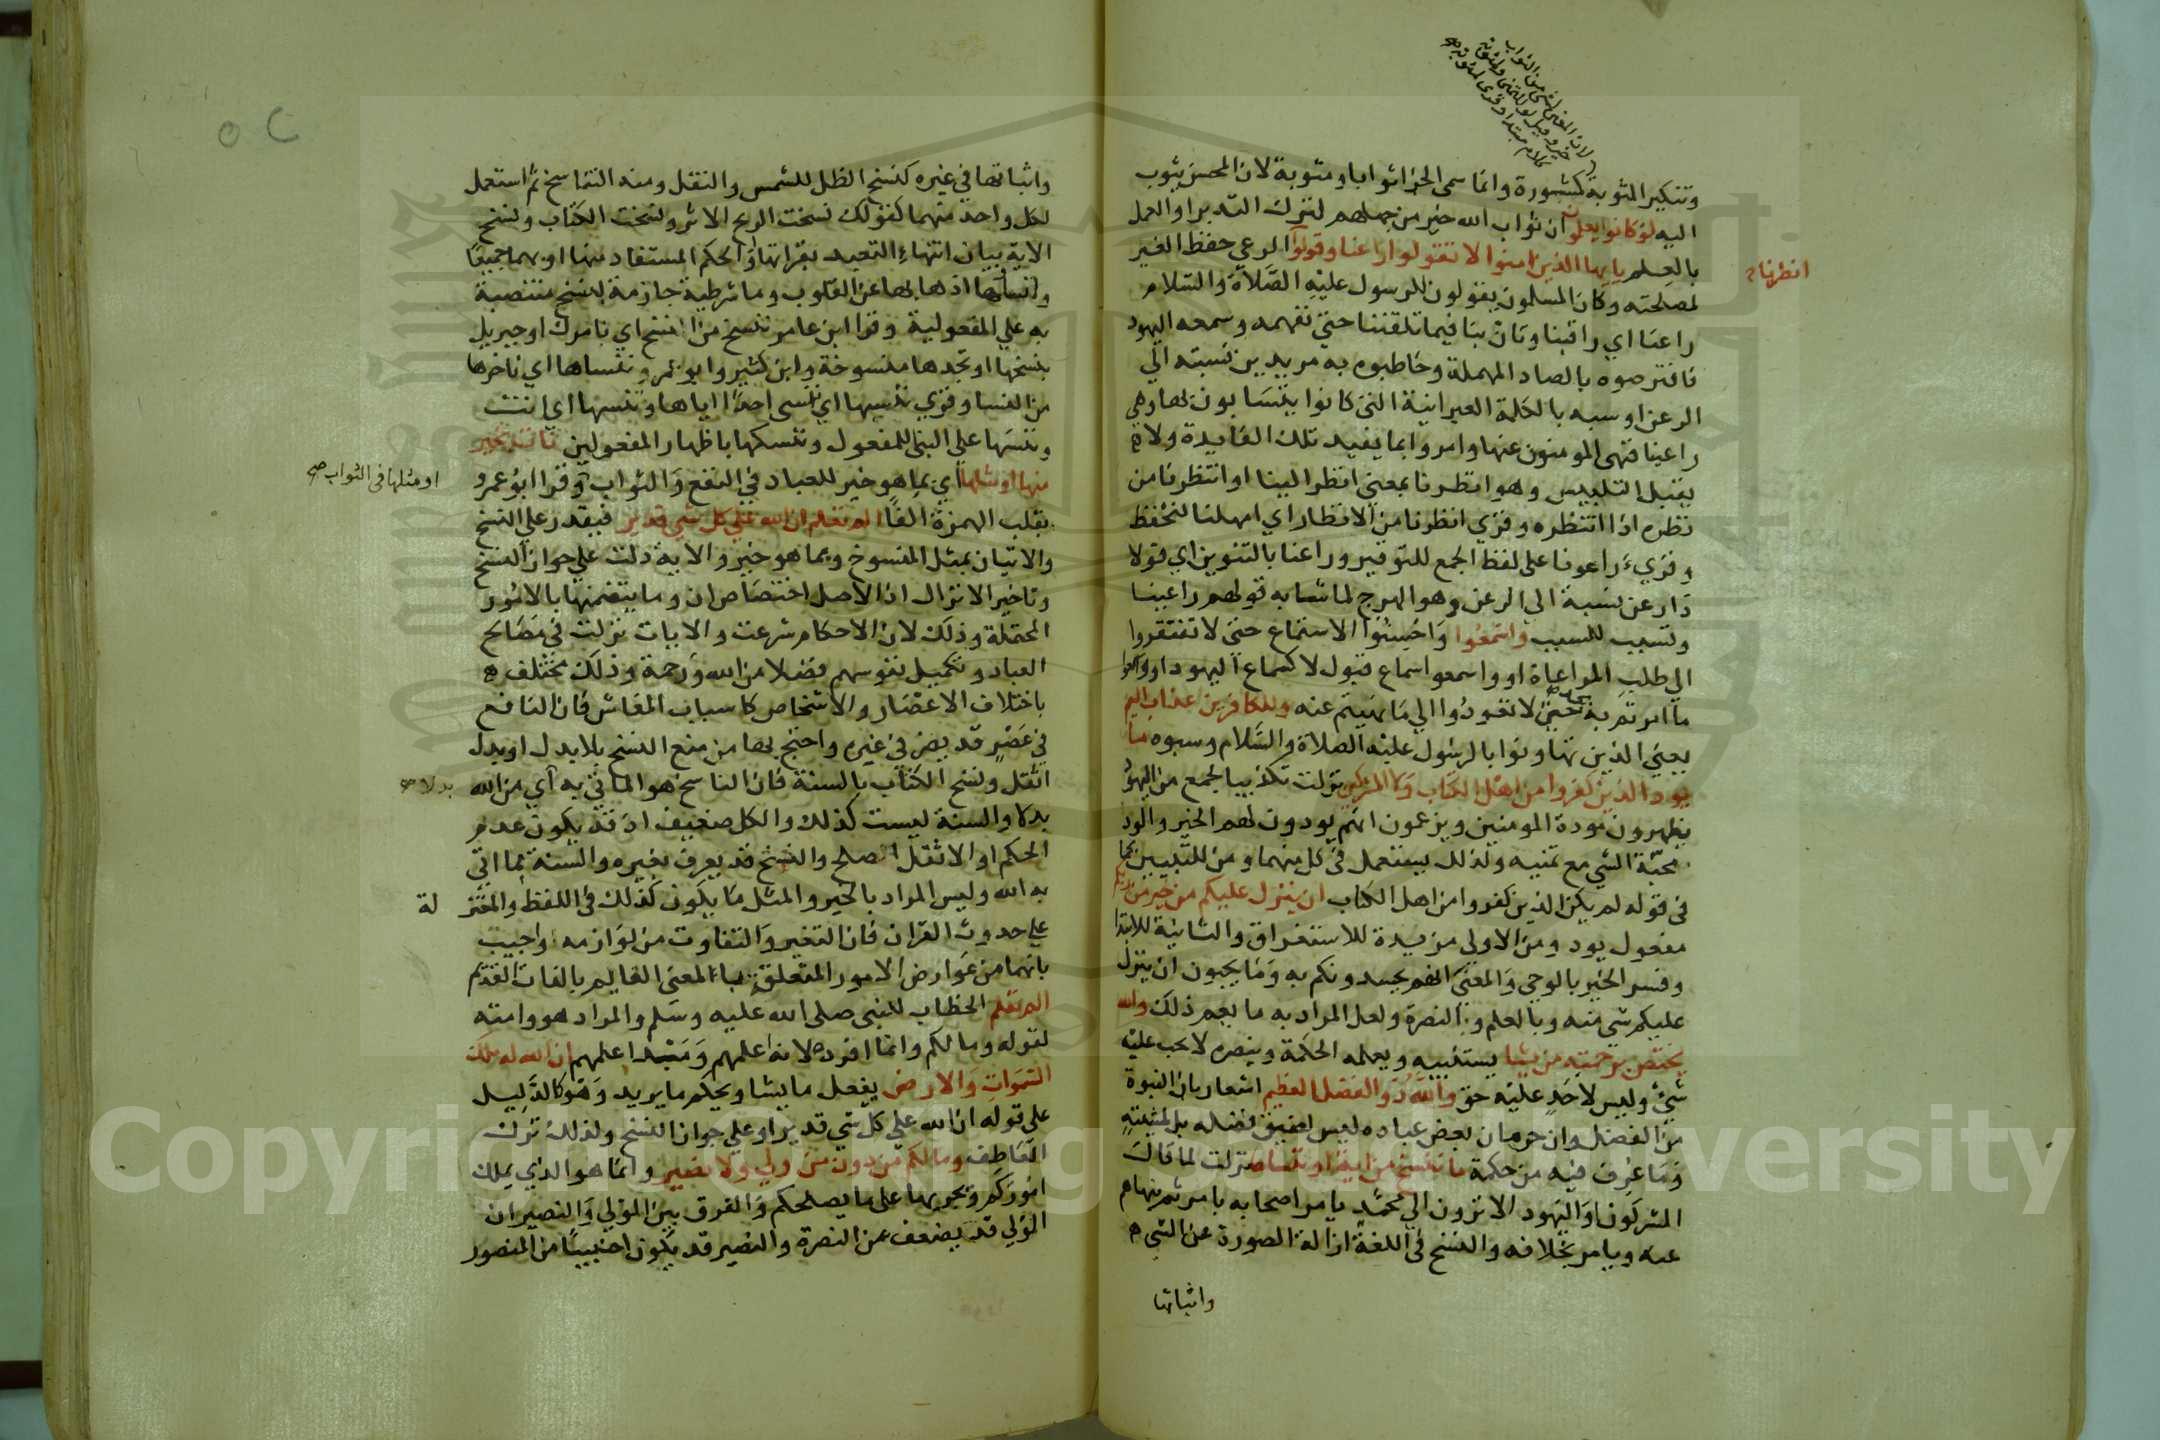 لان المعنى لشئ من الثواب
خير وقيل لو للتمنى ولمثوبة
كلام مبتدا وقرى لمثوبة صح
وتنكير المثوبة كمشورة وانما سمى الجزا ثوابا ومثوبة لان المحسن يثوب
اليه لو كانوا يعلمون ان ثواب الله خير من جهلهم لترك التدبر او العمل
بالعلم يايها الذين امنوا لا تقولوا راعنا وقولوا الرعي حفظ الغير
انظرنا
لمصلحته وكان المسلمون يقولون للرسول عليه الصلاة والسلام
راعنا اي راقبنا وتان بنا فيما تلقننا حتى نفهمه وسمعه اليهود
فافترصوه بالصاد المهملة وخاطبوه به مريدين نسبته الي
الرعن او سبه بالكلمة العبرانية التى كانوا يتسابون بها وهي
راعينا فنهى المومنون عنها وامروا بما يفيد تلك الفايدة ولا
يقبل التلبيس وهو انظرنا بمعنى انظر الينا او انتظرنا من
نظره اذا انتظره وقرى انظرنا من الانظار اي امهلنا لنحفظ
وقرىء راعونا على لفظ الجمع للتوقير وراعنا بالتنوين اي قولا
ذا رعن نسبة الي الرعن وهو الهرج لما شابه قولهم راعينا
وتسبب للسبب واسمعوا واحسنوا الاستماع حتى لا تفتقروا
الي طلب المراعاة او واسمعوا سماع قبول لا كسماع اليهود او واسمعوا
ما امرتم به حتى لا تعودوا الي ما نهيتم عنه وللكافرين عذاب اليم
يعني الذين تهاونوا بالرسول عليه الصلاة والسلام وسبوه ما
يود الذين كفروا من اهل الكتاب ولا المشركين نزلت تكذيبا لجمع من اليهود
يظهرون مودة المومنين ويزعمون انهم يودون لهم الخير والود
محبة الشي مع تمنيه ولذلك يستعمل في كل منهما ومن للتبيين كما
فى قوله لم يكن الذين كفروا من اهل الكتاب ان ينزل عليكم من خير من ربكم
مفعول يود ومن الاولي مزيدة للاستغراق والثانية للابتدا
وفسر الخير بالوحي والمعنى انهم يحسدونكم به وما يحبون ان ينزل
عليكم شي منه وبالعلم وبالنصرة ولعل المراد به ما يعم ذلك والله
يختص برحمته من يشا يستنبيه ويعلمه الحكمة وينصره لا يجب عليه
شئ وليس لاحد عليه حق والله ذو الفضل العظيم اشعار بان النبوة
من الفضل وان حرمان بعض عباده ليس لضيق فضله بل لمشيته
وما عرف فيه من حكمة ما ننسخ من اية او ننساها نزلت لما قالت
المشركون او اليهود الا ترون الي محمد يامر اصحابه بامر ثم ينهاهم
عنه ويامر بخلافه والنسخ فى اللغة ازالة الصورة عن الشي
واثباتها
واثباتها في غيره كنسخ الظل للشمس والنقل ومنه التناسخ ثم استعمل
لكل واحد منهما كقولك نسخت الريح الاثر ونسخت الكتاب ونسخ
الاية بيان انتهاء التعبد بقراتها او الحكم المستفاد منها او بهما جميعا
وانساوها اذهابها عن القلوب وما شرطية جازمة لننسخ منتصبة
به علي المفعولية وقرا ابن عامر ننسخ من انسخ اي نامرك او جبريل
بنسخها او نجدها منسوخة وابن كثير وابو عمرو ننساها اي ناخرها
من النسا وقري ننسها اي ننسى احدا اياها وتنسها اي انت
وتنسها علي البنا للمفعول وننسكها باظهار المفعولين نات بخير
منها او مثلها اي بما هو خير للعباد في النفع والثواب وقرا ابو عمرو
او مثلها فى الثواب صح
بقلب الهمزة الفا الم تعلم ان الله على كل شي قدير فيقدر علي النسخ
والاتيان بمثل المنسوخ وبما هو خير والاية دلت علي جواز النسخ
وتاخير الانزال اذ الاصل اختصاص ان وما يتضمنها بالامور
المحتملة وذلك لان الاحكام شرعت والايات نزلت في مصالح
العباد وتكميل نفوسهم فضلا من الله ورحمة وذلك يختلف
باختلاف الاعصار والاشخاص كاسباب المعاش فان النافع
في عصر قد يضر في غيره واحتج بها من منع النسخ بلا بدل او بدل
اثقل ونسخ الكتاب بالسنة فان الناسخ هو الماتي به اي من الله
بدلا صح
بدلا والسنة ليست كذلك والكل ضعيف اذ قد يكون عدم
الحكم او الاثقل اصلح والنسخ قد يعرف بغيره والسنة مما اتى
به الله وليس المراد بالخير والمثل ما يكون كذلك فى اللفظ والمعتز
لة
علي حدوث القران فان التغير والتفاوت من لوازمه واجيب
بانهما من عوارض الامور المتعلقة بها المعنى القايم بالذات القديم
الم تعلم الخطاب للنبى صلى الله عليه وسلم والمراد هو وامته
لقوله وما لكم وانما افرده لانه اعلمهم ومبدا علمهم ان الله له ملك
السموات والارض يفعل ما يشا ويحكم ما يريد وهو كالدليل
على قوله ان الله علي كل شي قدير او علي جواز النسخ ولذلك ترك
العاطف وما لكم من دون الله من ولي ولا نصير وانما هو الذي يملك
اموركم ويجريها على ما يصلحكم والفرق بين الولي والنصير ان
الولي قد يضعف عن النصرة والنصير قد يكون اجنبيا من المنصور
Copyright © King Saud University